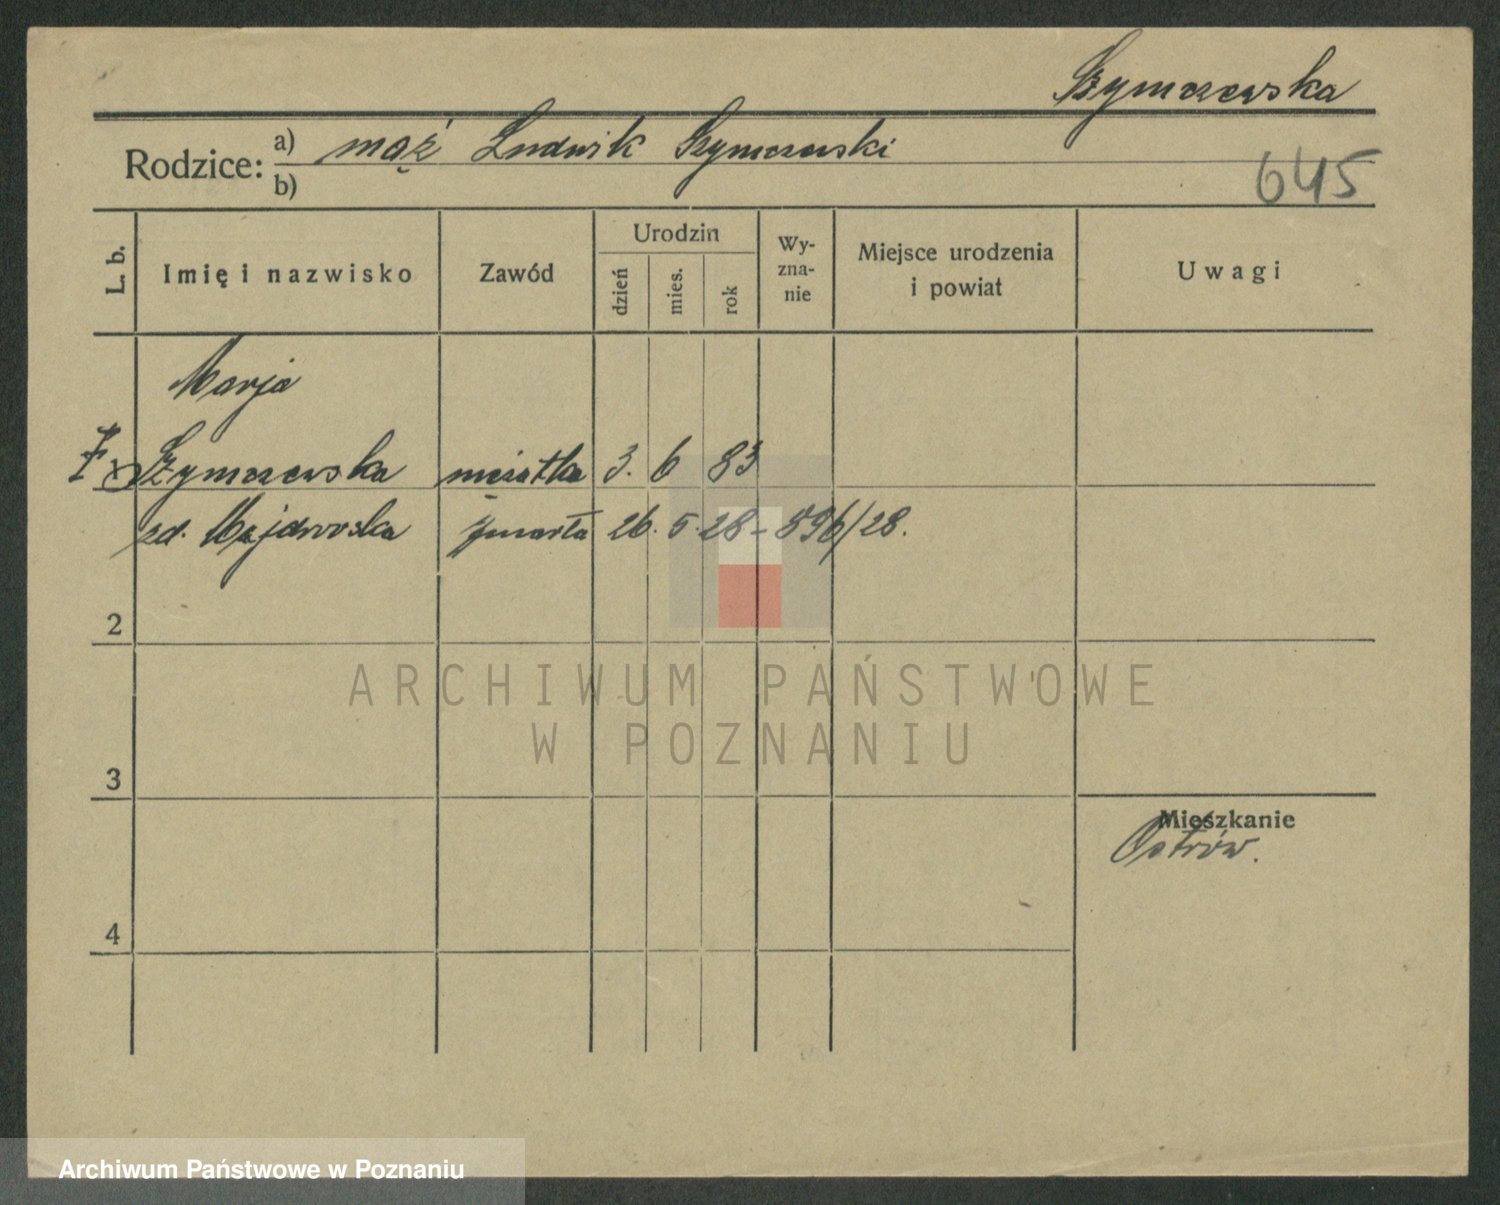 Szymczewska
Rodzice: a) mąż Ludwik Szymczewski
b)
645
L. b. Imię i nazwisko Zawód Urodzin dzień mies. rok Wyznanie Miejsce urodzenia i powiat Uwagi
Marja
Szymczewska mężatka 3. 6 83
zd. Majdrowska zmarła 26. 5. 28 - 896/28.
2
3
Mieszkanie
Ostrów.
4
ARCHIWUM PAŃSTWOWE
W POZNANIU
Archiwum Państwowe w Poznaniu